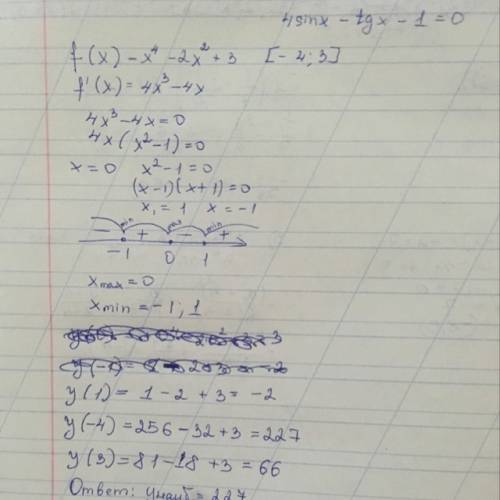 4sinx - tgx - 1 = 0
f(x) - x⁴ - 2x² + 3 [-4; 3]
f'(x) = 4x³ - 4x
4x³ - 4x = 0
4x(x² - 1) = 0
x = 0 x² - 1 = 0
(x - 1)(x + 1) = 0
x₁ = 1 x = -1
min max min
- + - +
-1 0 1
xmax = 0
xmin = -1; 1
y(1) = 1 - 2 + 3 = -2
y(-4) = 256 - 32 + 3 = 227
y(3) = 81 - 18 + 3 = 66
Ответ: yнаиб = 227